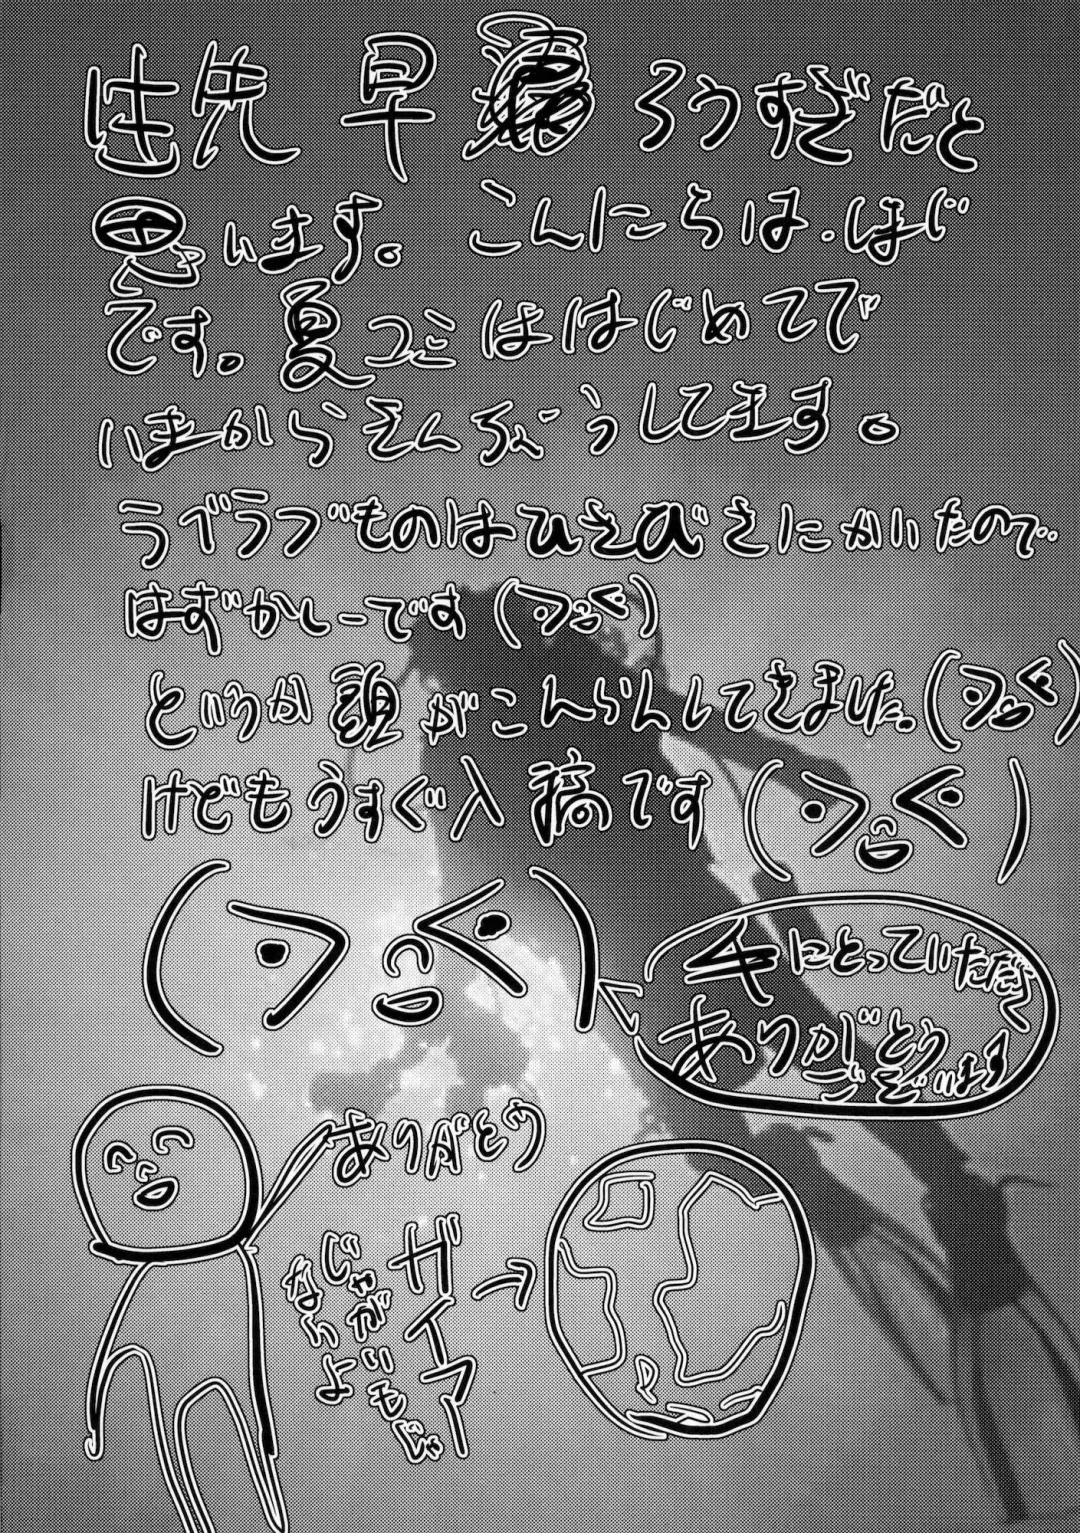 先 早ろうすぎだと
思います。こんにちは.はじ
です。夏コミははじめてで
いまからぞんぶうしてます。
ラブラブものはひさびさにかいたので
はずかしーです
というか頭がこんらんしてきました。
けどもうすぐ入稿です
手にとっていただく
ありがとう
ございます
ありがとう
ガイアー
じゃがいもじゃ
ないよ